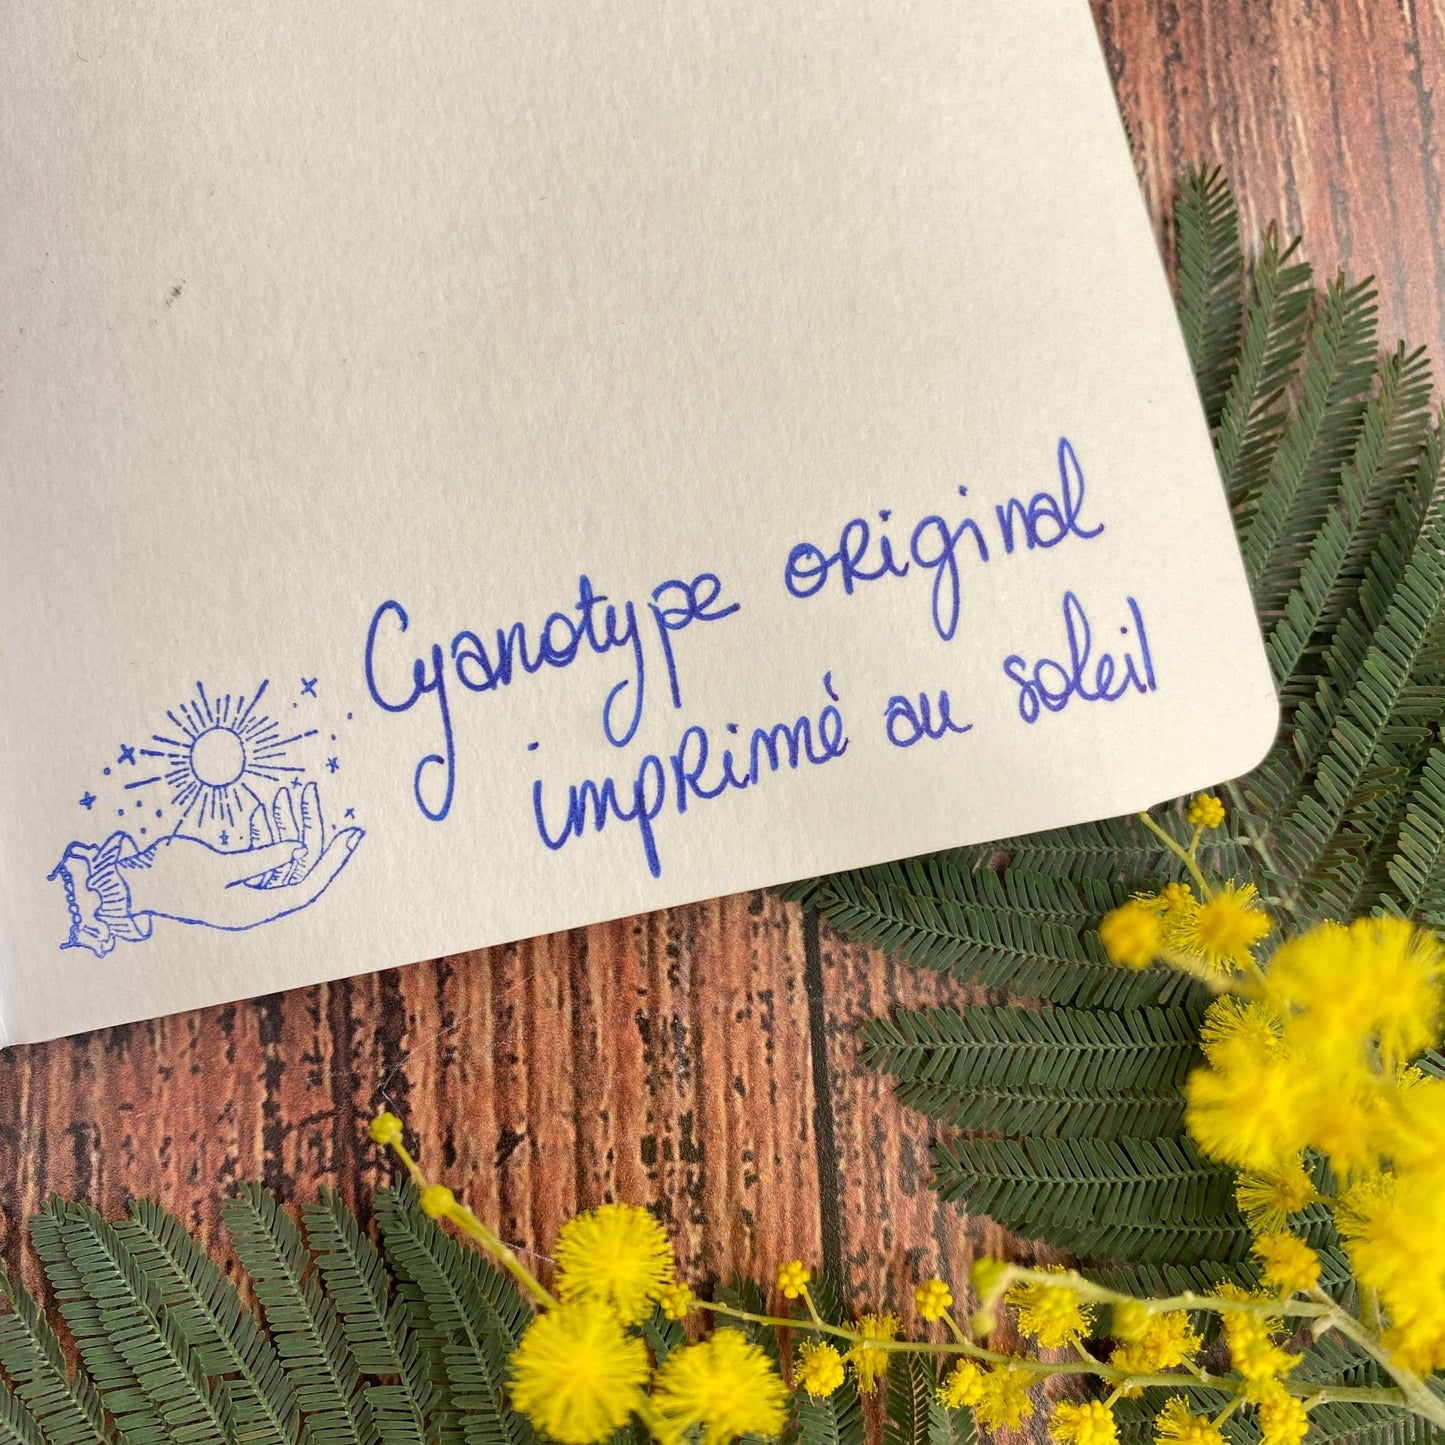 Cyanotype original
imprimé au soleil